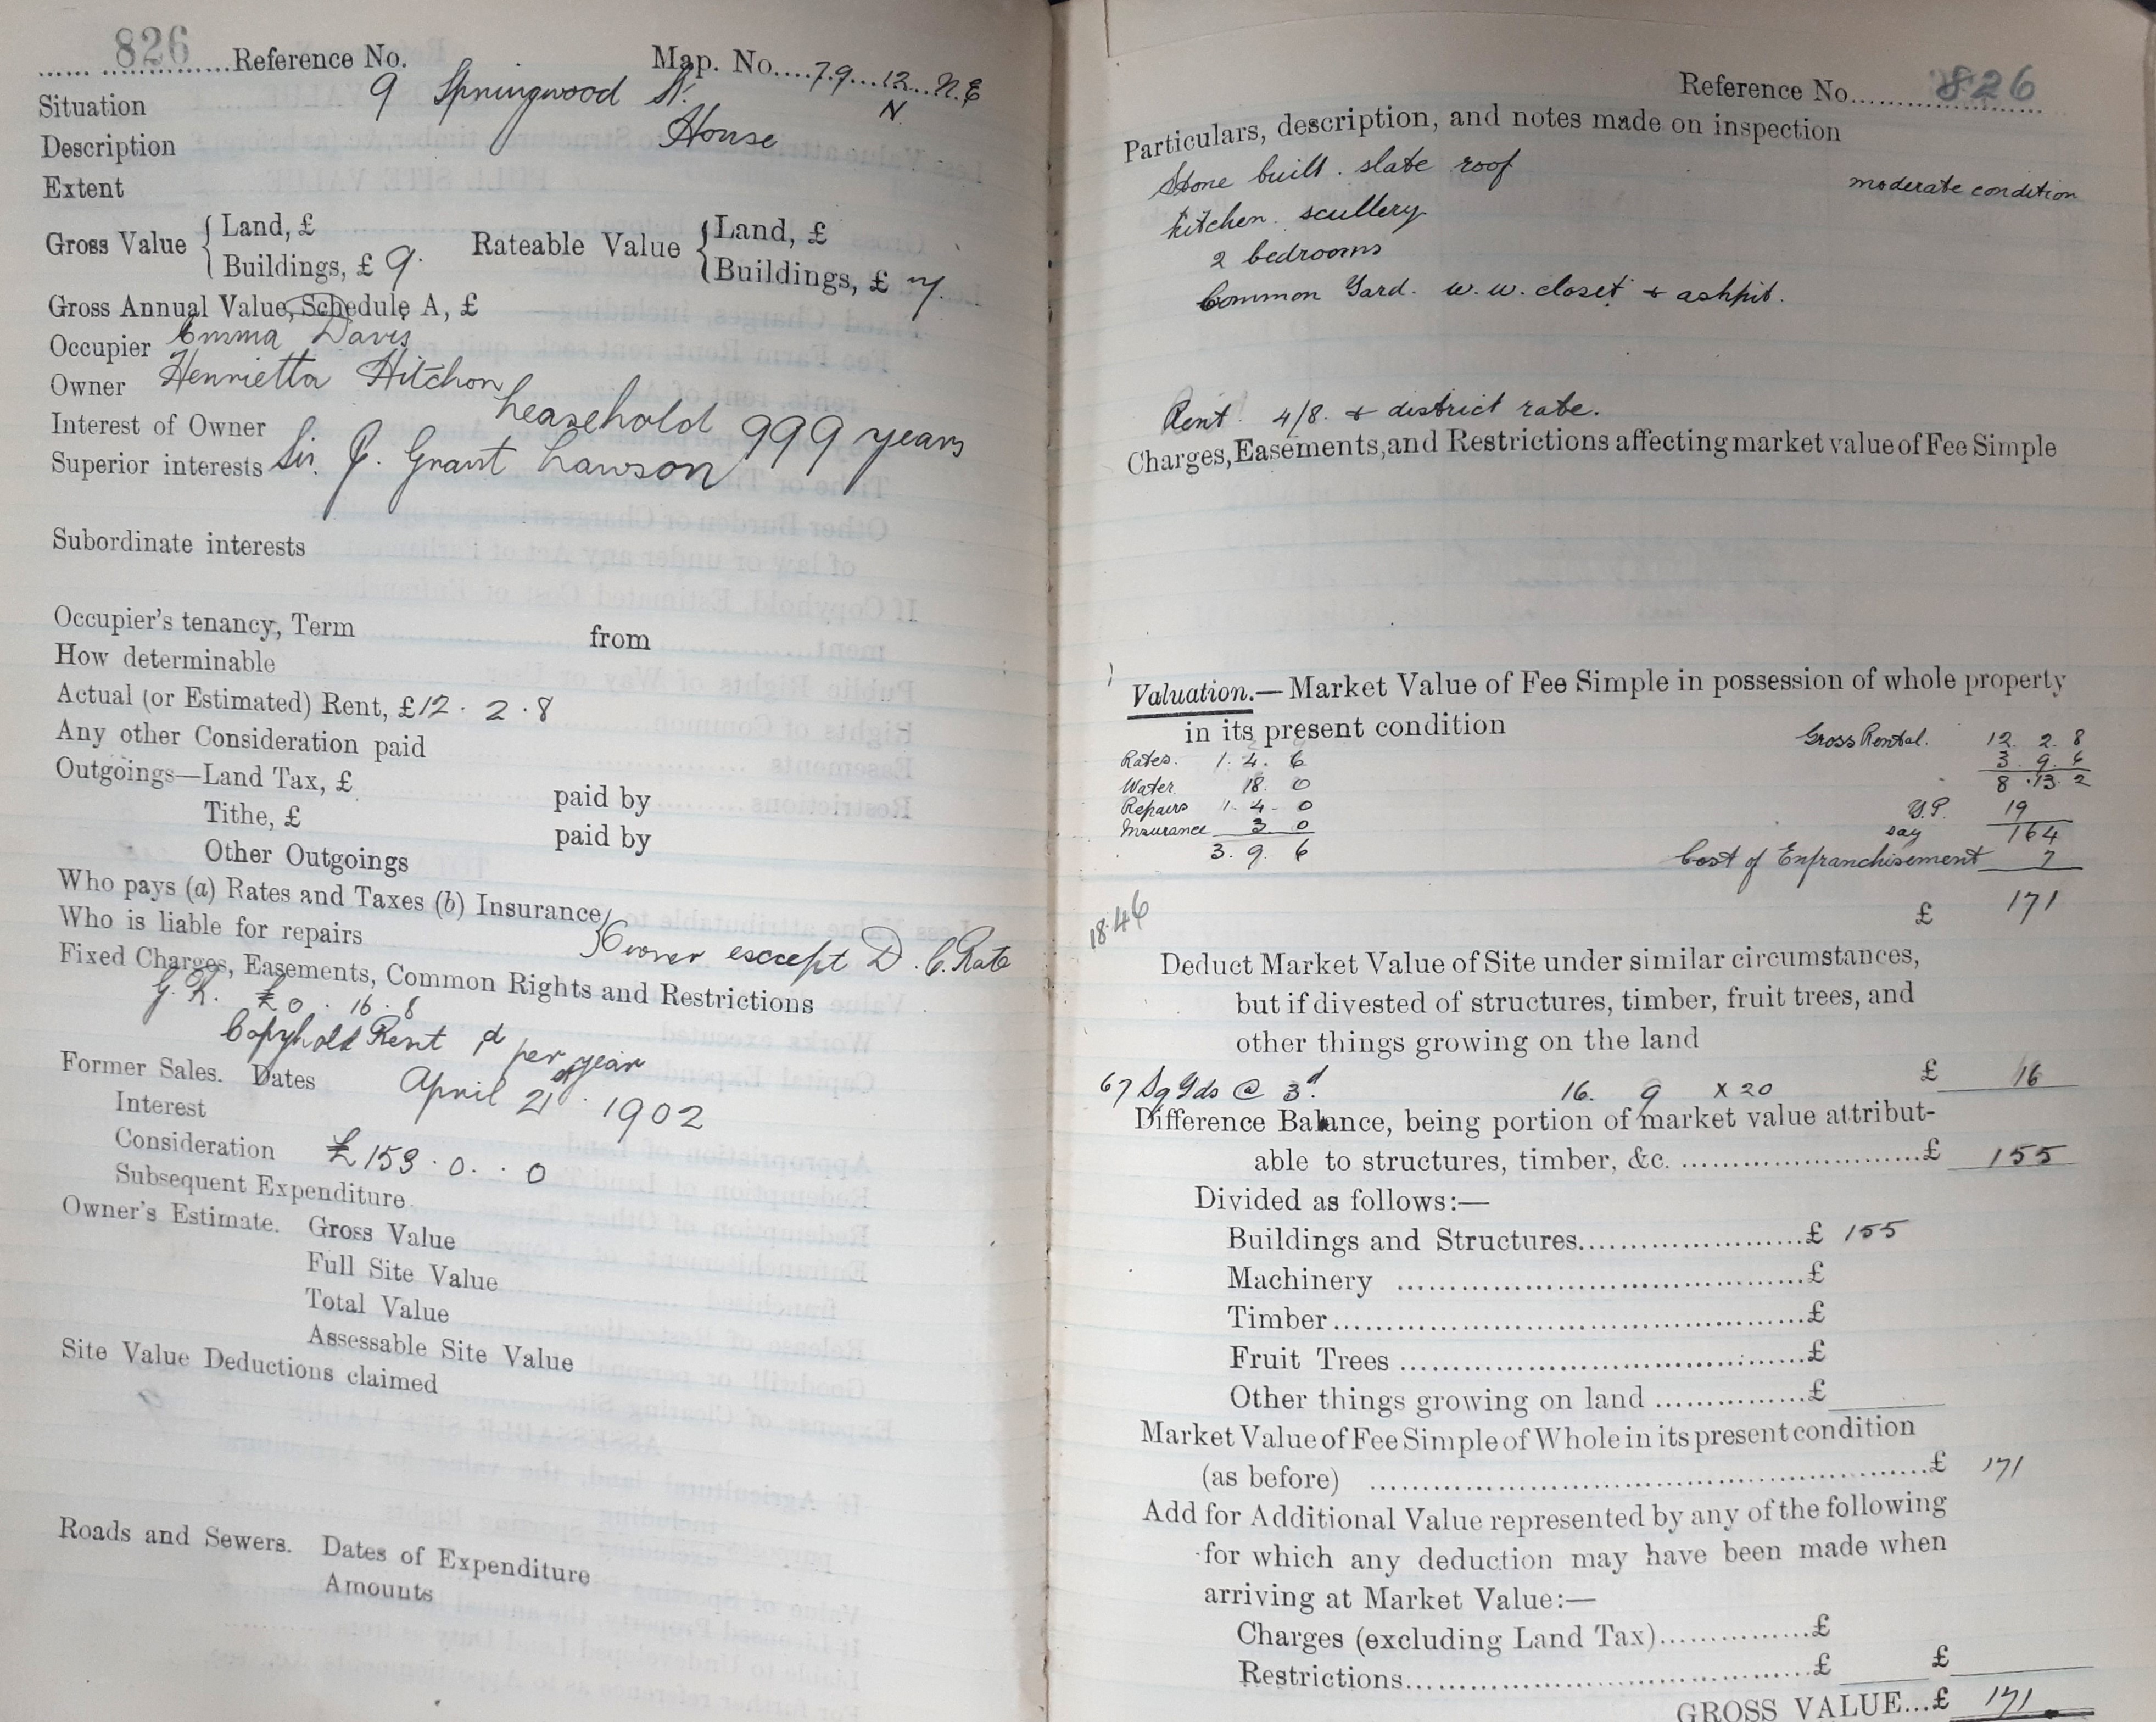 826 Reference No. Map. No....79...12...N.E
Situation 9 Springwood St. N.
Description House
Extent
Gross Value { Land, £ Rateable Value { Land, £
Buildings, £ 9. Buildings, £ 7.
Gross Annual Value, Schedule A, £
Occupier Emma Davis
Owner Henrietta Hitchon
Interest of Owner Leasehold 999 years
Superior interests Sir. J. Grant Lawson
Subordinate interests
Occupier's tenancy, Term from
How determinable
Actual (or Estimated) Rent, £12 . 2 . 8
Any other Consideration paid
Outgoings—Land Tax, £ paid by
Tithe, £ paid by
Other Outgoings
Who pays (a) Rates and Taxes (b) Insurance
Who is liable for repairs } Owner except D.C. Rate
Fixed Charges, Easements, Common Rights and Restrictions
G. R. £0 . 16 . 8
Copyhold Rent d per year
Former Sales. Dates April 21st. 1902
Interest
Consideration £153 . 0 . . 0
Subsequent Expenditure
Owner's Estimate. Gross Value
Full Site Value
Total Value
Assessable Site Value
Site Value Deductions claimed
Roads and Sewers. Dates of Expenditure
Amounts
Reference No. 826
Particulars, description, and notes made on inspection
Stone built. slate roof moderate condition
kitchen. scullery
2 bedrooms
Common Yard. w.w. closet & ashpit.
Rent. 4/8. & district rate.
Charges, Easements, and Restrictions affecting market value of Fee Simple
Valuation.—Market Value of Fee Simple in possession of whole property
in its present condition Gross Rental. 12. 2. 8
Rates. 1. 4. 6 3. 9. 6
Water 18. 0 8 . 13. 2
Repairs 1. 4 - 0 Y.P. 19
Insurance 3. 0 say 164
3. 9. 6 Cost of Enfranchisement 7
18.46 £ 171
Deduct Market Value of Site under similar circumstances,
but if divested of structures, timber, fruit trees, and
other things growing on the land £ 16
67 Sq Yds @ 3d. 16. 9 x 20
Difference Balance, being portion of market value attribut-
able to structures, timber, &c. £ 155
Divided as follows:—
Buildings and Structures £ 155
Machinery £
Timber £
Fruit Trees £
Other things growing on land £
Market Value of Fee Simple of Whole in its present condition
(as before) £ 171
Add for Additional Value represented by any of the following
for which any deduction may have been made when
arriving at Market Value:—
Charges (excluding Land Tax) £
Restrictions £ £
GROSS VALUE...£ 171